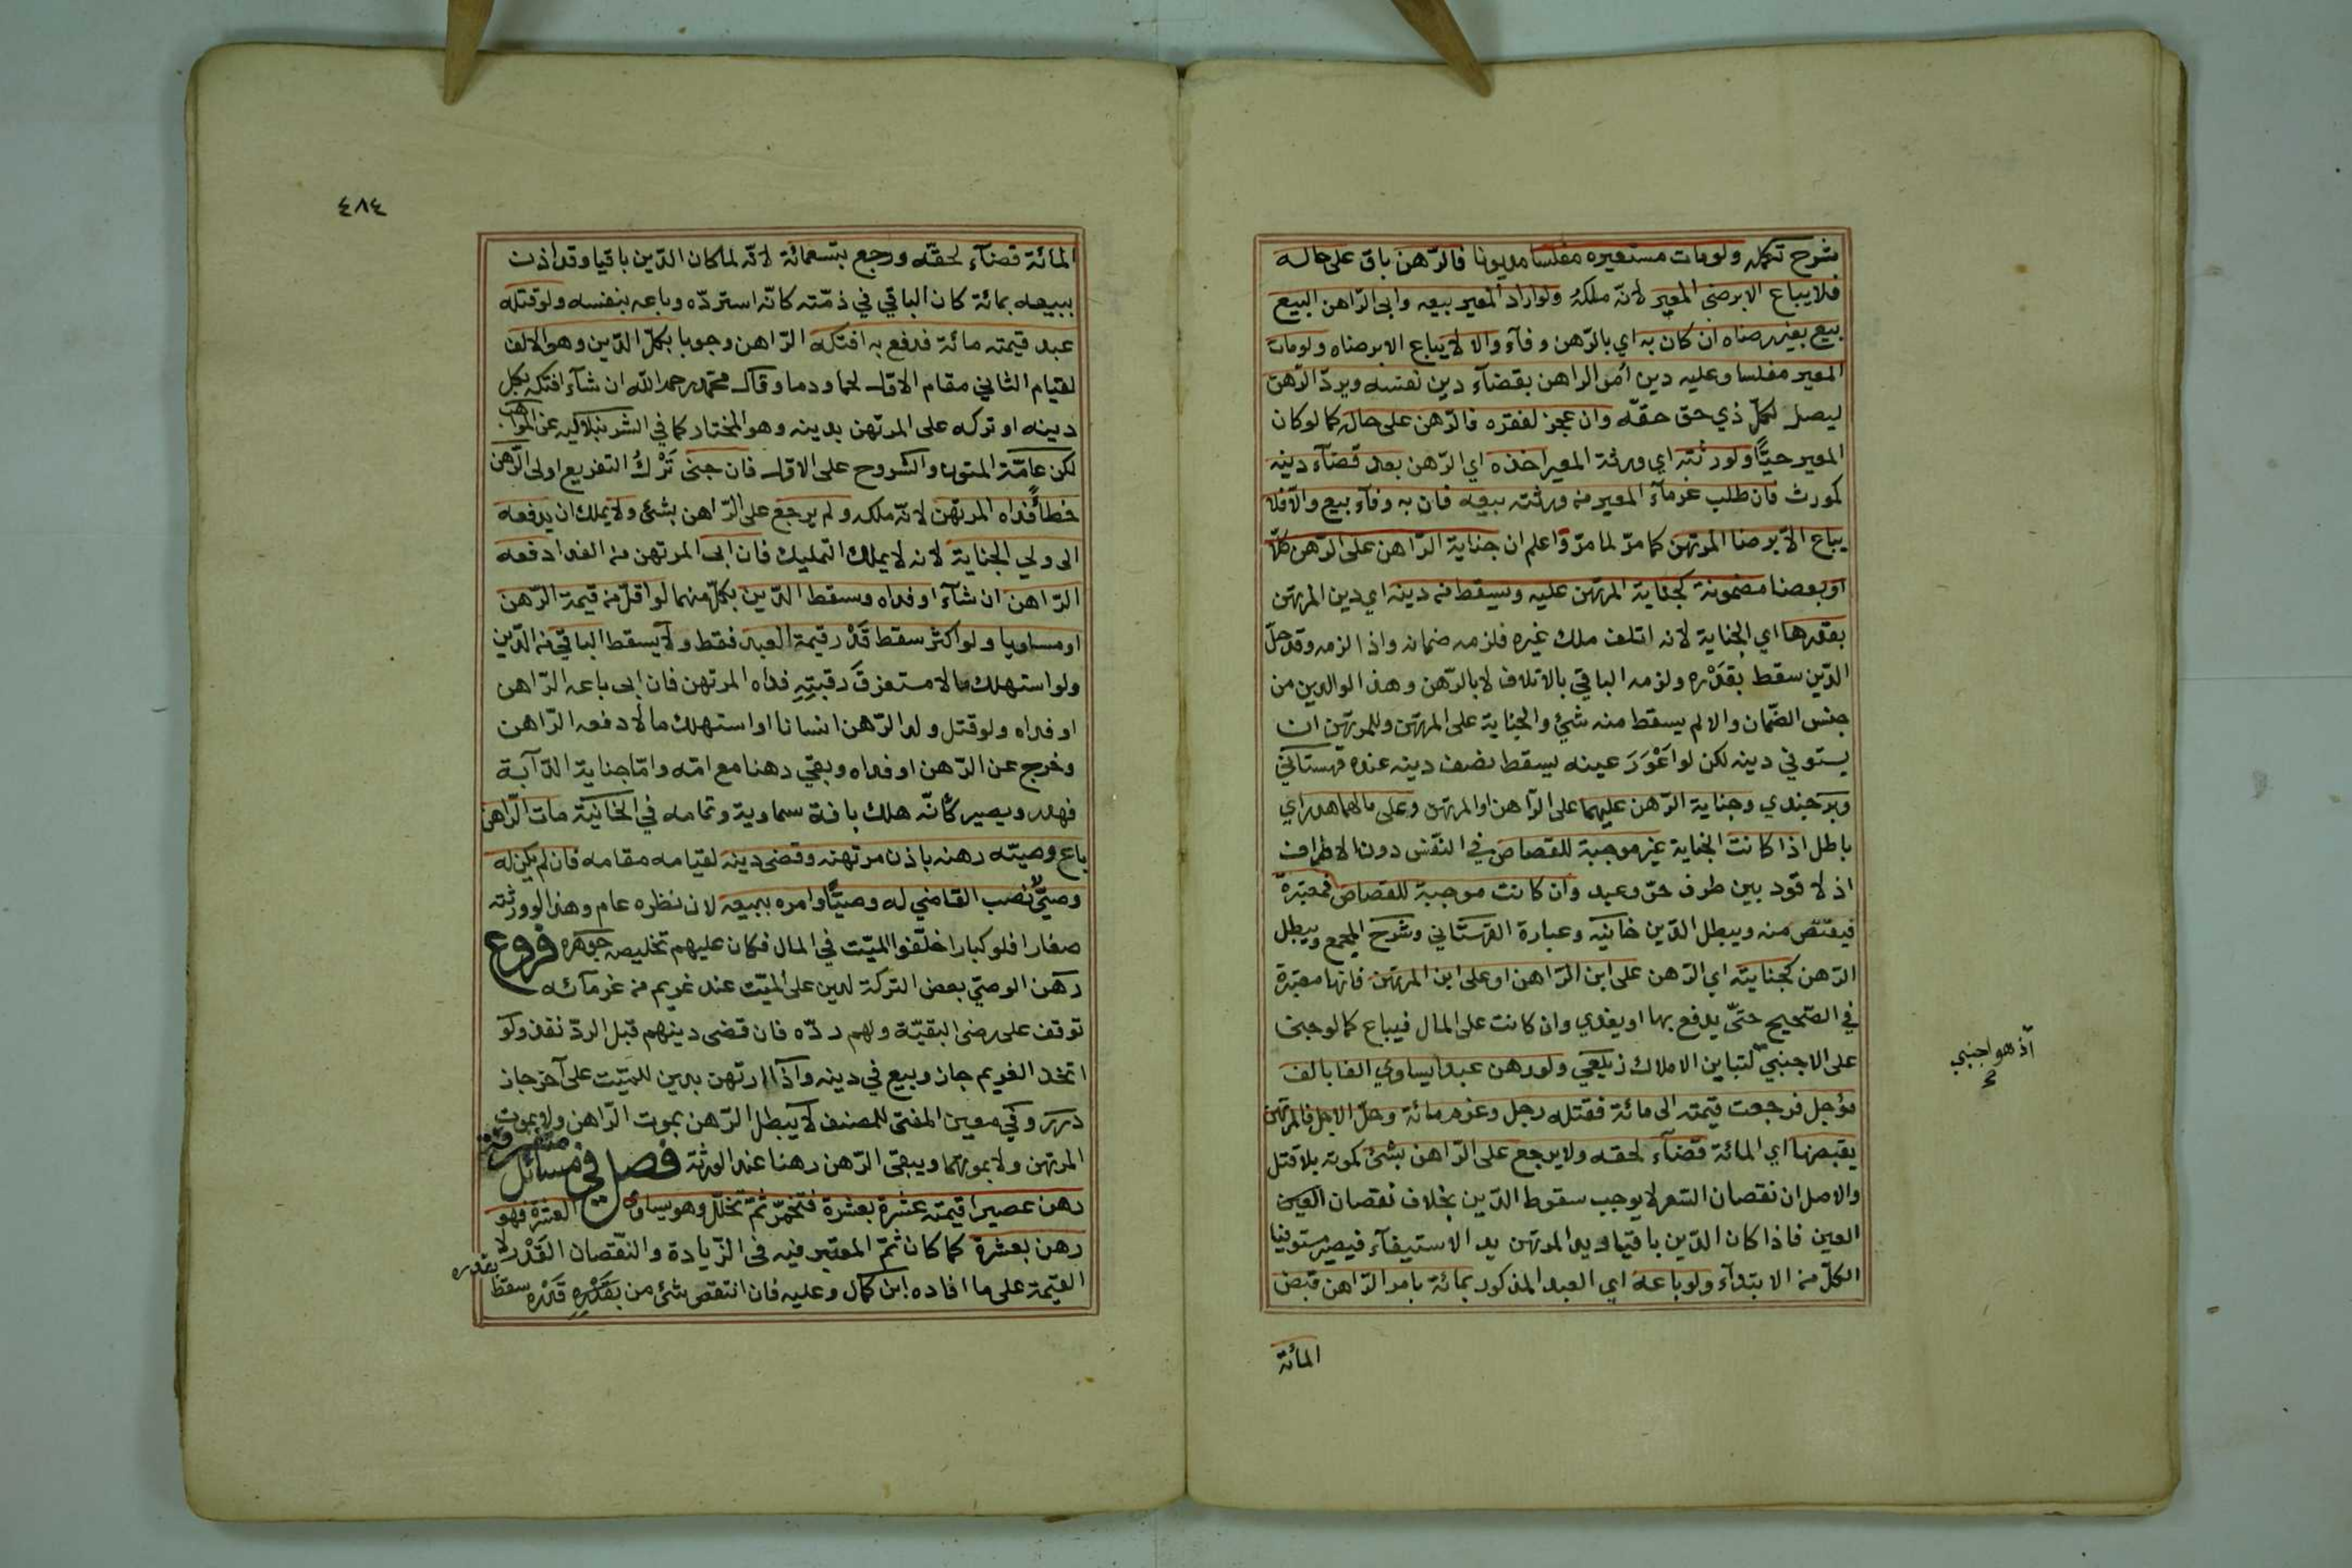 شرح تكمله ولومات مستعيره مفلسا مديونا فالرّهن باق على حاله
فلا يباع الا برضى المعير لانّه ملكهُ ولو اراد المعير بيعه وابى الرّاهن البيع
بيع بغير رضاه ان كان به اي بالرّهن وفآء والا لا يباع الا برضاه ولومات
المعير مفلسا وعليه دين أمر الراهن بقضآء دين نفسه ويردّ الرّهن
ليصل لكلّ ذي حق حقّه وان عجز لفقره فالرّهن على حاله كما لو كان
المعير حيّاً ولورثته اي ورثة المعير اخذه اي الرّهن بعد قضآء دينه
كمورث فان طلب غرمآء المعير من ورثته بيعه فان به وفآء بيع والّا فلا
يباع الّا برضا المرتهن كما مرّ لما مرّ واعلم ان جناية الرّاهن على الرّهن كلّا
او بعضا مضمونة كجناية المرتهن عليه ويسقط من دينه اي دين المرتهن
بقدرها اي الجناية لانه اتلف ملك غيره فلزمه ضمانه واذا لزمه وقد حلّ
الدّين سقط بقَدْره ولزمه الباقي بالاتلاف لا بالرّهن وهذا لو الدين من
جنس الضّمان والا لم يسقط منه شئ والجناية على المرتهن وللمرتهن ان
يستوفي دينه لكن لو اعْوَرَ عينه يسقط نصف دينه عنده قهستاني
وبرجندي وجناية الرّهن عليهما على الرّاهن او المرتهن وعلى مالهما هدر اي
باطل اذا كانت الجناية غير موجبة للقصاص في النّفس دون الاطراف
اذ لا قود بين طرف حرّ وعبد وان كانت موجبة للقصاص فمعتبرة
فيقتصّ منه ويبطل الدّين خانيّه وعبارة القهستاني وشرح المجمع ويبطل
الرّهن كجنايته اي الرّهن على ابن الرّاهن او على ابن المرتهن فانها معتبرة
في الصّحيح حتّى يدفع بها او يفدي وان كانت على المال فيباع كما لو جنى
على الاجنبيّ لتباين الاملاك زيلعي ولو رهن عبدا يساوي الفا بالف
اذ هو اجنبي
مؤجل فرجعت قيمته الى مائة فقتله رجل وغرم مائة وحلّ الاجل فالمرتهن
يقبضها اي المائة قضآء لحقه ولا يرجع على الرّاهن بشئ كموته بلا قتل
والاصل ان نقصان السّعر لا يوجب سقوط الدّين بخلاف نقصان العين
العين فاذا كان الدّين باقيا ويد المرتهن يد الاستيفآء فيصير مستوفيا
الكلّ من الابتدآء ولو باعه اي العبد المذكور بمائة بامر الرّاهن قبض
المأئة
٤٨٤
المائة قضآء لحقّه ورجع بتسعمائة لانّه لما كان الدّين باقيا وقد اذن
ببيعه بمائة كان الباقي في ذمّته كانّه استردّه وباعه بنفسه ولو قتله
عبد قيمته مائة فدفع به افتكه الرّاهن وجوبا بكلّ الدّين وهو الالف
لقيام الثاني مقام الاوّل لحما ودما وقال محمّد رحمه اللّه ان شآء افتكه بكل
دينه او تركه على المرتهن بدينه وهو المختار كما في الشرنبلاليه عن المواهب
لكن عامّة المتون والشروح على الاوّل فان جنى تَرْكُ التفريع اولى الرّهن
خطأً فداه المرتهن لانّه ملكه ولم يرجع على الرّاهن بشئ ولا يملك ان يدفعه
الى ولي الجناية لانه لا يملك التمليك فان ابى المرتهن من الفدا دفعه
الرّاهن ان شآء او فداه وسقط الدّين بكلّ منهما لو اقلّ من قيمة الرّهن
او مساويا ولو اكثر سقط قَدْر قيمة العبد فقط ولا يسقط الباقي من الدّين
ولو استهلك مالا مستغرقَ رقبتِهِ فداه المرتهن فان ابى باعه الرّاهن
او فداه ولو قتل ولد الرّهن انسانا او استهلك مالا دفعه الرّاهن
وخرج عن الرّهن او فداه وبقي رهنا مع امّه وامّا جناية الدّآبة
فهدر ويصير كأنّه هلك بافة سماوية وتمامه في الخانيّة مات الرّاهن
باع وصيّه رهنه باذن مرتهنه وقضى دينه لقيامه مقامه فان لم يكن له
وصيٌّ نصب القاضي له وصيّاً وامره ببيعه لان نظره عام وهذا لو ورثته
صغارا فلو كبارا خلّفوا الميّت في المال فكان عليهم تخليصه جوهره فروع
رهن الوصيّ بعض التركة لدين على الميّت عند غريم من غرمآئه
توقف على رضى البقيّة ولهم ردّه فان قضى دينهم قبل الردّ نفذ ولو
اتحد الغريم جاز وبيع في دينه واذا ارتهن بدين للميّت على آخر جاز
درر وفي معين المفتى للمصنف لا يبطل الرّهن بموت الرّاهن ولا بموت
المرتهن ولا بموتهما ويبقى الرّهن رهنا عند الورثة فصل في مسائل متفرقة
رهن عصيرا قيمته عشرة بعشرة فتخمّر ثمّ تخلّل وهو يساوي العشرة فهو
رهن بعشرة كما كان ثمّ المعتبر فيه في الزّيادة والنّقصان القَدْر لا
القيمة على ما افاده ابن كمال وعليه فان انتقص شئ من بقَدْرِهِ قَدْره سقط بقدره